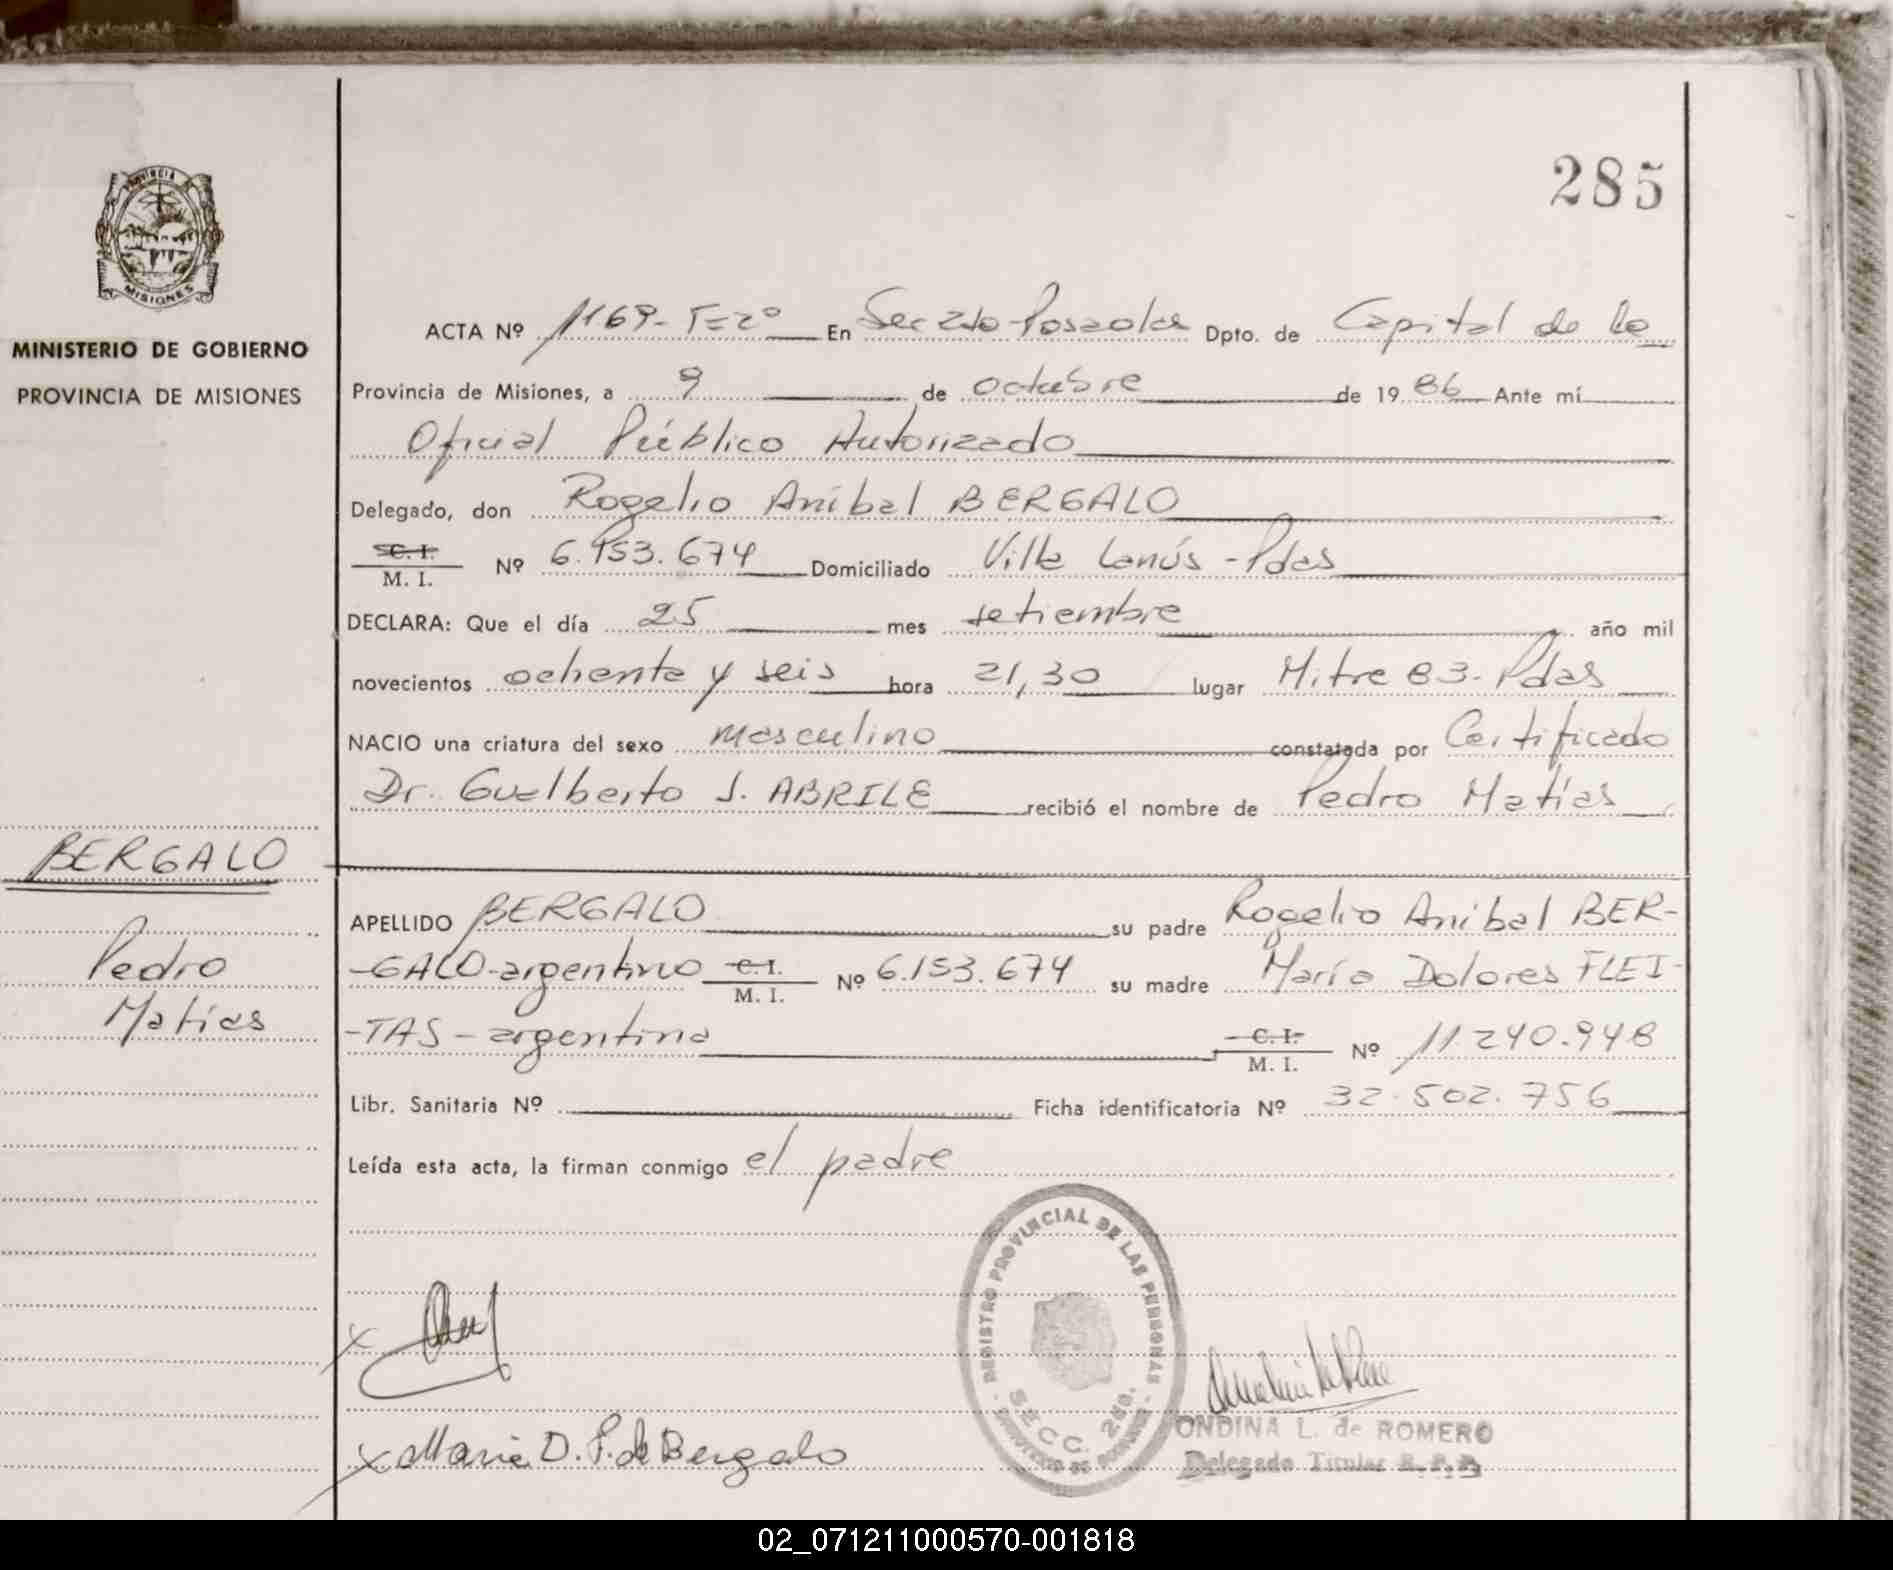 285
PROVINCIA
MISIONES
MINISTERIO DE GOBIERNO
PROVINCIA DE MISIONES
ACTA Nº 1169- T=2º En Sec 2da-Posadas Dpto. de Capital de la
Provincia de Misiones, a 9 de octubre de 19 86 Ante mí
Oficial Público Autorizado
Delegado, don Rogelio Aníbal BERGALO
C. I.
M. I. Nº 6.153.674 Domiciliado Villa Lanús - Pdas
DECLARA: Que el día 25 mes setiembre año mil
novecientos ochenta y seis hora 21,30 lugar Mitre 83- Pdas
NACIO una criatura del sexo masculino constatada por Certificado
Dr. Gualberto J. ABRILE recibió el nombre de Pedro Matías
BERGALO
Pedro
Matías
APELLIDO BERGALO su padre Rogelio Aníbal BER-
-GALO-argentino C. I. M. I. Nº 6.153.674 su madre María Dolores FLEI-
-TAS - argentina C. I. M. I. Nº 11.240.948
Libr. Sanitaria Nº Ficha identificatoria Nº 32.502.756
Leída esta acta, la firman conmigo el padre
REGISTRO PROVINCIAL DE LAS PERSONAS
SECC. 2da.
x
x Maria D. F. de Bergalo
ONDINA L. de ROMERO
Delegado Titular R. P. P.
02_071211000570-001818